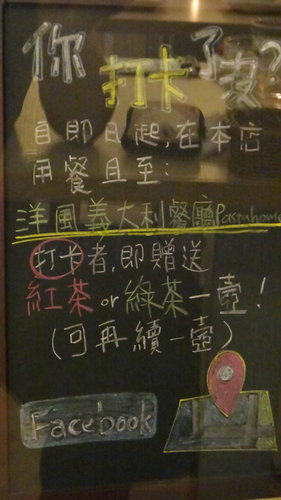 你打卡了沒?
自即日起,在本店
用餐且至:
洋風義大利餐廳Pastahome
打卡者,即贈送
紅茶or綠茶一壺!
(可再續一壺)
Facebook